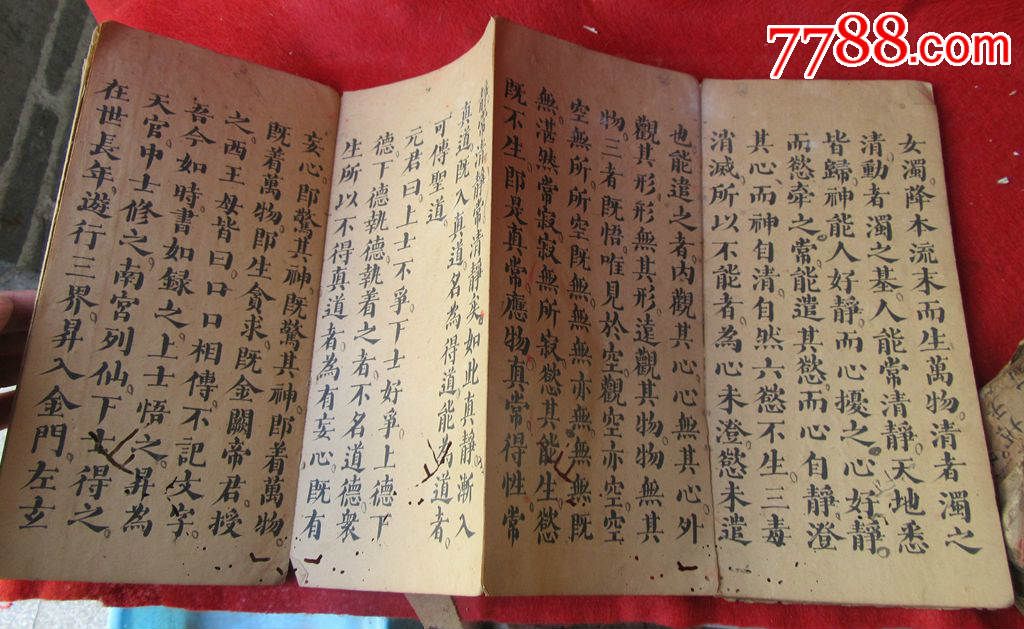 7788.com
女濁降木流末而生萬物清者濁之
清動者濁之基人能常清靜天地悉
皆歸神能人好靜而心擾之心好靜
而慾牽之常能遣其慾而心自靜澄
其心而神自清自然六慾不生三毒
消滅所以不能者為心未澄慾未遣
也能遣之者內觀其心心無其心外
觀其形形無其形遠觀其物物無其
物三者既悟唯見於空觀空亦空空
空無所所空既無無無亦無無無既
無湛然常寂寂無所寂慾其能生慾
既不生即是真常應物真常得性常
常清靜常清靜矣如此真靜漸入
真道既入真道名為得道能為道者
可傳聖道
元君曰上士不爭下士好爭上德下
德下德執德執着之者不名道德眾
生所以不得真道者為有妄心既有
妄心即驚其神既驚其神即着萬物
既着萬物即生貪求既金闕帝君授
之西王母皆曰口口相傳不記文字
吾今如時書如録之上士悟之昇為
天官中士修之南宮列仙下士得之
在世長年遊行三界昇入金門左玄